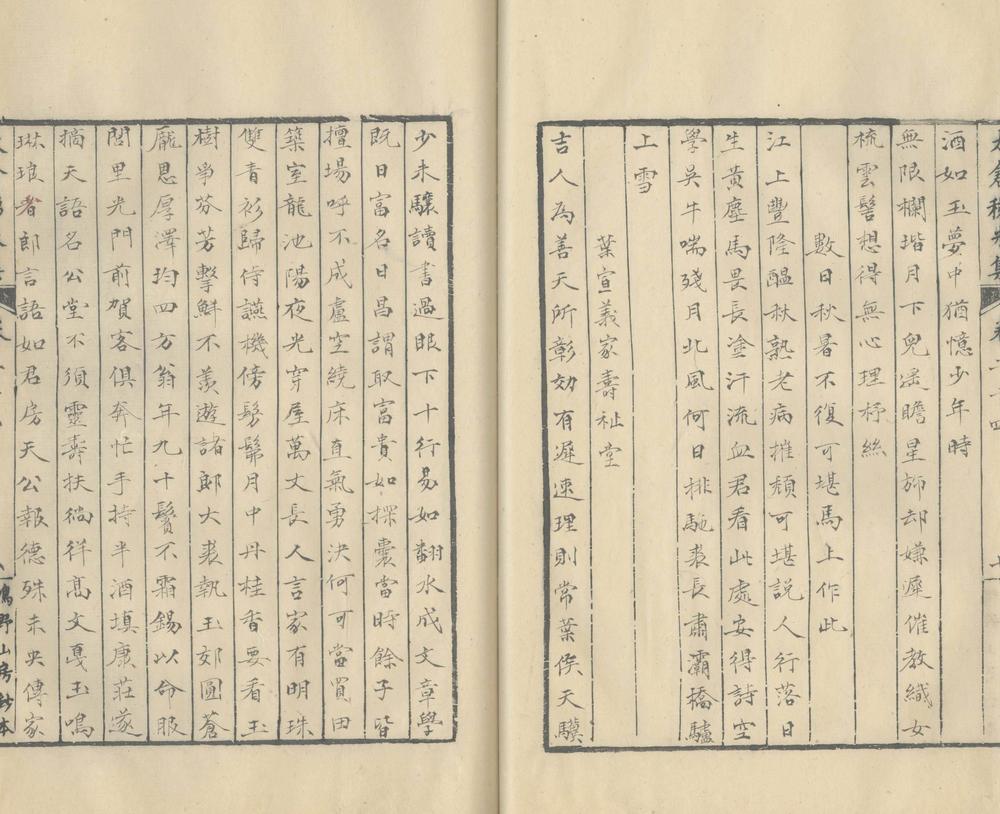 酒如玉夢中猶憶少年時
無限欄堦月下兒遥瞻星斾却嫌遲催教織女
梳雲髻想得無心理杼絲
數日秋暑不復可堪馬上作此
江上豐隆醖秋熟老病摧頹可堪說人行落日
生黃塵馬畏長塗汗流血君看此處安得詩空
學吳牛喘殘月北風何日排駞裘長肅灞橋驢
上雪
葉宣義家壽祉堂
吉人為善天所彰効有遲速理則常葉侯天驥
少未驤讀書過眼下十行易如翻水成文章學
既日富名日昌謂取富貴如探囊當時餘子皆
擅場呼不成盧空繞床直氣勇決何可當買田
築室龍池陽夜光穿屋萬丈長人言家有明珠
雙青衫歸侍讌機傍髣髴月中丹桂香要看玉
樹爭芬芳擊鮮不羨遊諸郎大裘執玉郊圜蒼
厖恩厚澤均四方翁年九十鬢不霜錫以命服
閭里光門前賀客俱奔忙手持半酒填康莊遂
摛天語名公堂不須靈壽扶徜徉髙文戛玉鳴
琳琅者郎言語如君房天公報德殊未央傳家
鳴野山房鈔本